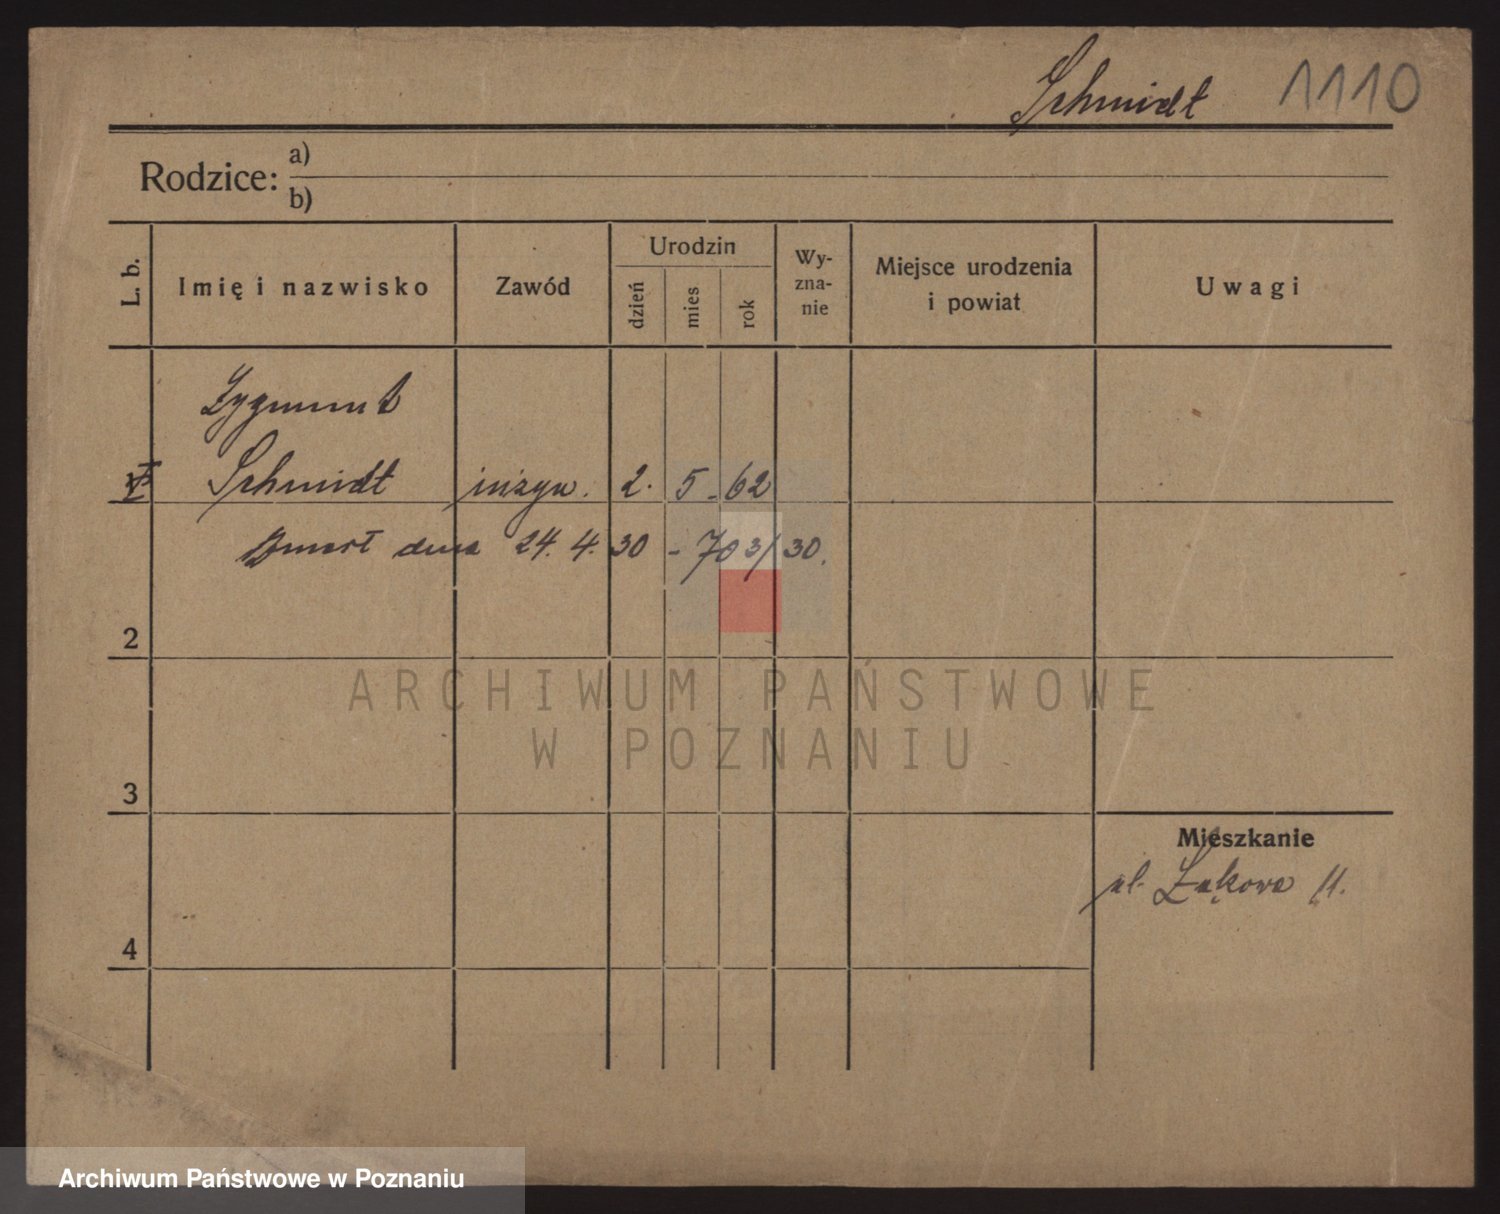 Schmidt 1110
Rodzice: a)
b)
L. b. Imię i nazwisko Zawód Urodzin dzień mies rok Wyznanie Miejsce urodzenia i powiat Uwagi
Zygmunt
Schmidt inżyn. 2. 5. 62
Zmarł dnia 24. 4. 30 - 703/30.
2
ARCHIWUM PAŃSTWOWE
W POZNANIU
3
Mieszkanie
ul. Łąkowa 11.
4
Archiwum Państwowe w Poznaniu